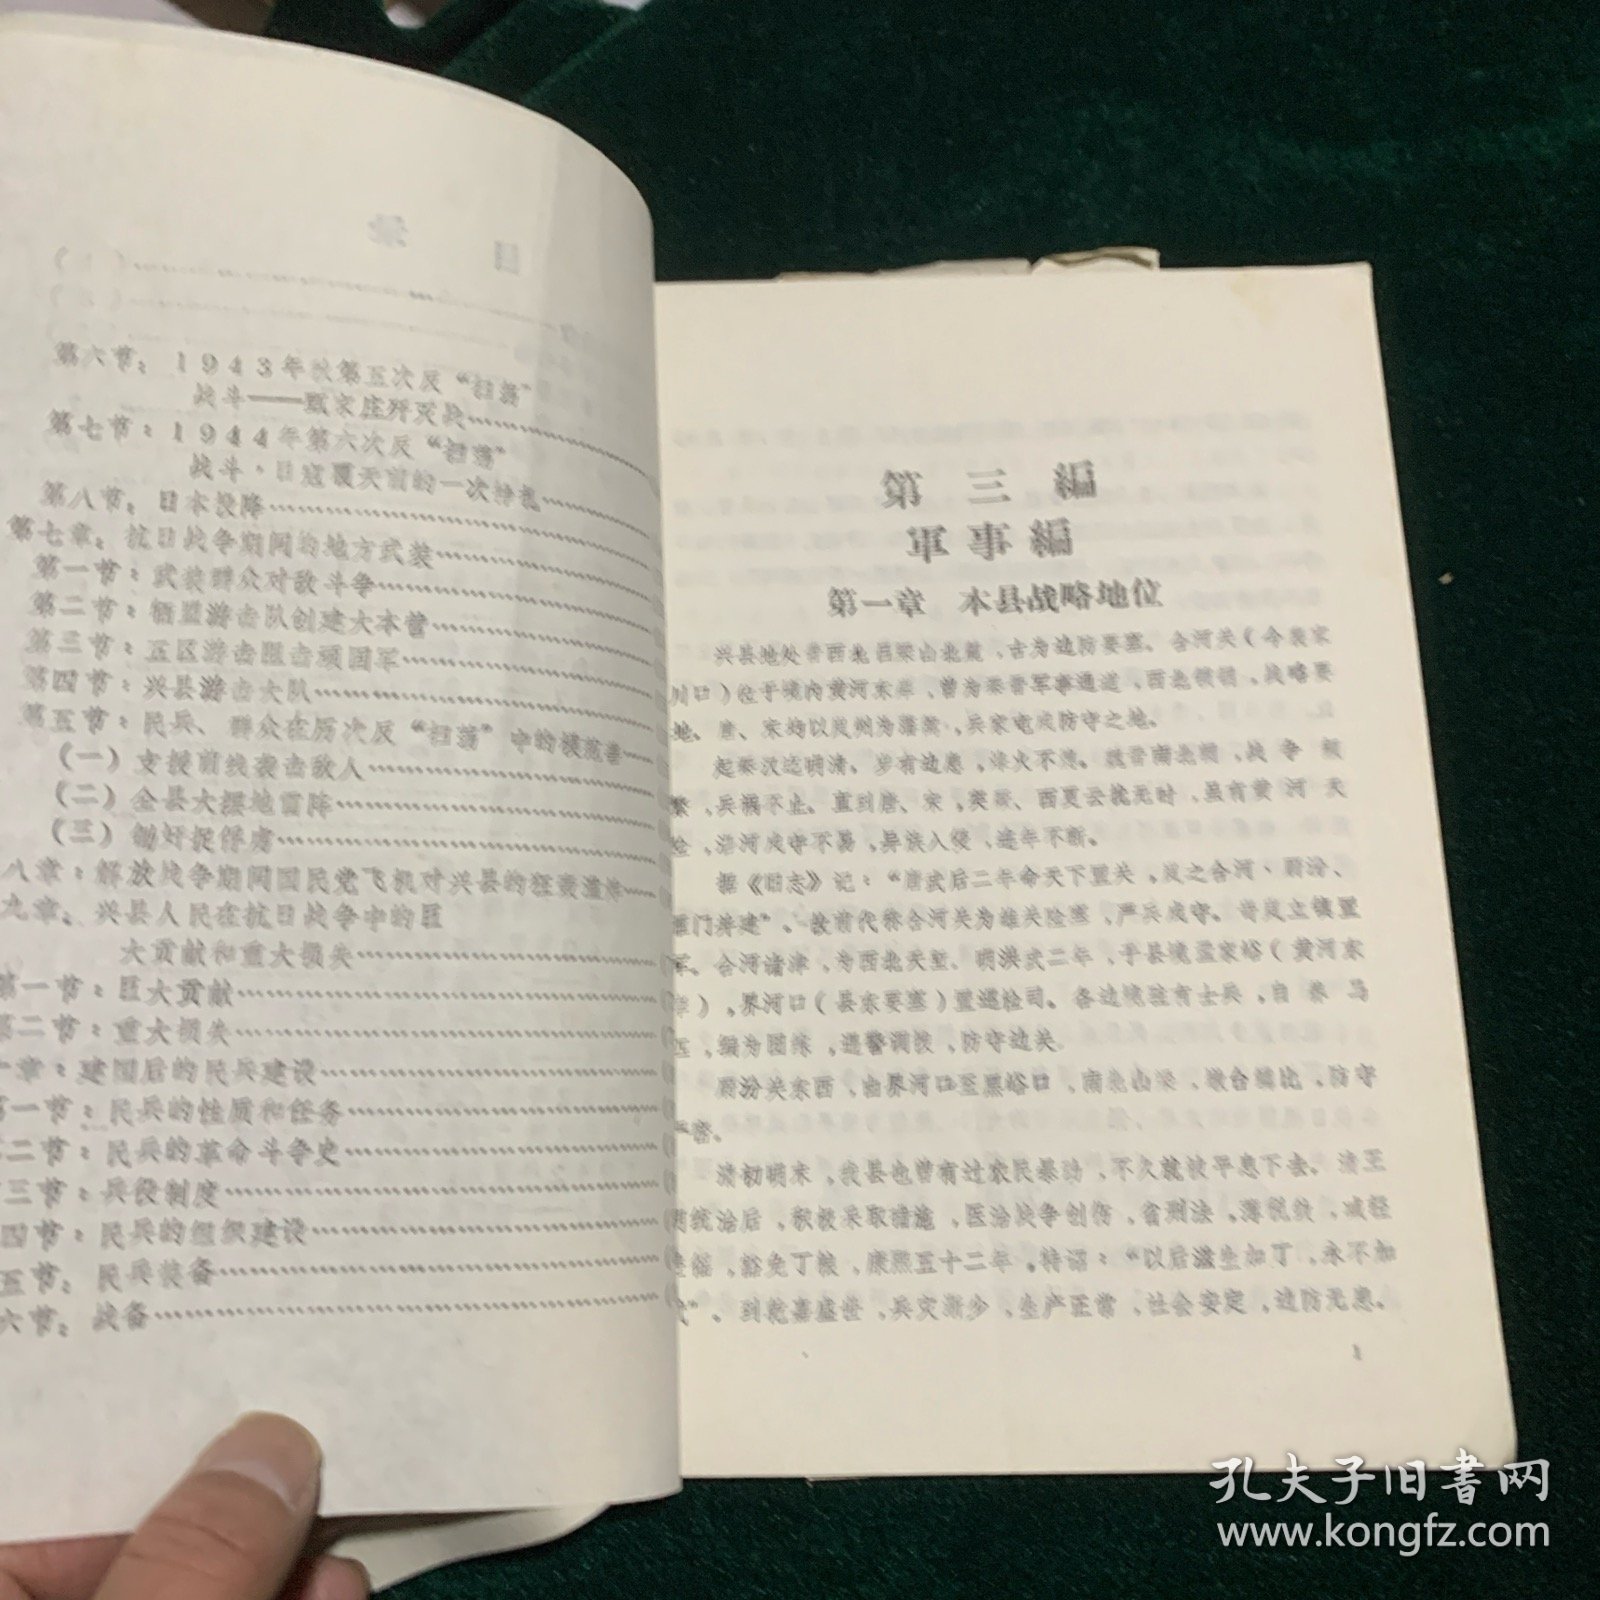 第六节：1943年秋第五次反“扫荡”
战斗——甄家庄歼灭战
第七节：1944年第六次反“扫荡”
战斗·日寇覆灭前的一次挣扎
第八节：日本投降
第七章：抗日战争期间的地方武装
第一节：武装群众对敌斗争
第二节：牺盟游击队创建大本营
第三节：五区游击阻击顽固军
第四节：兴县游击大队
第五节：民兵、群众在历次反“扫荡”中的模范事
（一）支援前线袭击敌人
（二）全县大摆地雷阵
（三）锄奸捉俘虏
八章：解放战争期间国民党飞机对兴县的狂轰滥炸
九章：兴县人民在抗日战争中的巨
大贡献和重大损失
第一节：巨大贡献
第二节：重大损失
十章：建国后的民兵建设
第一节：民兵的性质和任务
第二节：民兵的革命斗争史
三节：兵役制度
四节：民兵的组织建设
五节：民兵装备
六节：战备
第三编
軍事編
第一章 本县战略地位
兴县地处晋西北吕梁山北麓，古为边防要塞。合河关（今裴家
川口）位于境内黄河东岸，曾为秦晋军事通道，西北锁钥，战略要
地。唐、宋均以岚州为藩篱，兵家屯戍防守之地。
起秦汉迄明清、岁有边患，烽火不息。魏晋南北朝，战争频
繁，兵祸不止。直到唐、宋，契丹、西夏云扰无时，虽有黄河天
险，沿河戍守不易，异族入侵，连年不断。
据《旧志》记：“唐武后二年命天下置关，岚之合河·蔚汾、
雁门并建”。故前代称合河关为雄关险塞，严兵戍守。
军。合河诸津，为西北天堑。明洪武二年，于县境孟家峪（黄河东
岸），界河口（县东要塞）置巡检司。各边境驻有士兵，自养马
匹，编为团练，遇警调拨，防守边关
蔚汾关东西，由界河口至黑峪口，南北山梁，墩台栉比，防守
严密。
清初明末，我县也曾有过农民暴动，不久就被平息下去。清王
朝统治后，积极采取措施，医治战争创伤，省刑法，薄税敛，减轻
徭，豁免丁粮，康熙五十二年，特诏：“以后滋生加丁，永不加
赋”。到乾嘉盛世，兵灾渐少，生产正常，社会安定，边防无患。
1
孔夫子旧书网
www.kongfz.com